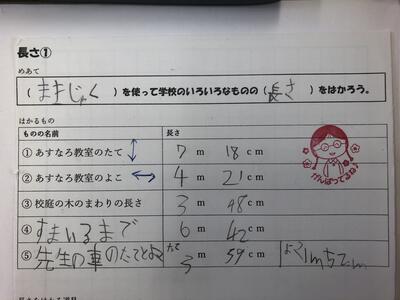 長さ①
めあて
（ まきじゃく ）を使って学校のいろいろなものの（ 長さ ）をはかろう。
はかるもの
ものの名前 長さ
① あすなろ教室のたて 7 m 18 cm
② あすなろ教室のよこ 4 m 21 cm
③ 校庭の木のまわりの長さ 3 m 48 cm
④ すまいるまで 6 m 42 cm
⑤ 先生の車のたてとよこ たて 3 m 59 cm よこ 1m 57cm
がんばってるね♪